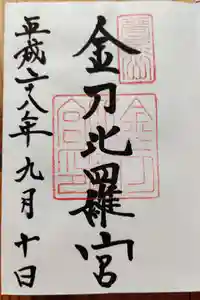 金刀比羅宮
平成二十八年九月十日